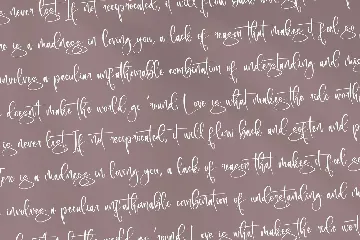 is never lost. If not reciprocated, it will flow back and soften and p
There is a madness in loving you, a lack of reason that makes it feel so
involves a peculiar unfathomable combination of understanding and mis
doesn't make the world go 'round. Love is what makes the ride worth
is never lost. If not reciprocated, it will flow back and soften and p
There is a madness in loving you, a lack of reason that makes it feel so
involves a peculiar unfathomable combination of understanding and mis
doesn't make the world go 'round. Love is what makes the ride worth